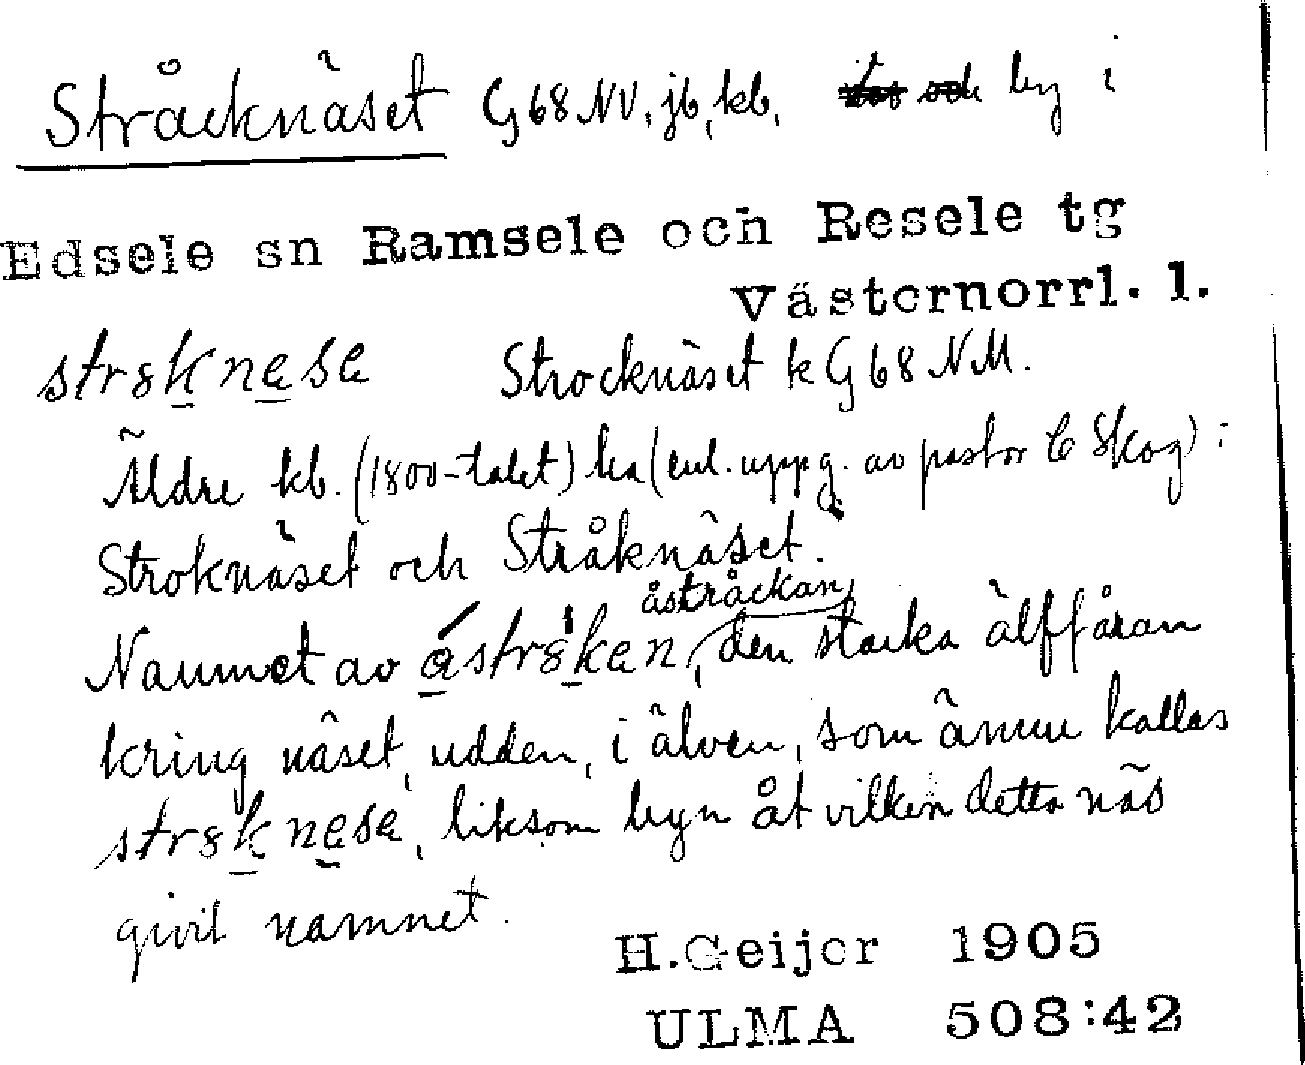 Stråcknäset G68NV, jb, kb, by i
Edsele sn Ramsele och Resele tg
Västernorrl. l.
strȣknesa Strocknäset k G68NM.
Äldre kb. (1800-talet) ha (enl. uppg. av pastor C Skog):
Stroknäset och Stråknäset.
åstråckan
Namnet av åstrȣkan, den starka älffåran
kring näset, udden, i älven, som ännu kallas
strȣknesa, liksom byn åt vilken detta näs
givit namnet.
H.Geijer 1905
ULMA 508:42